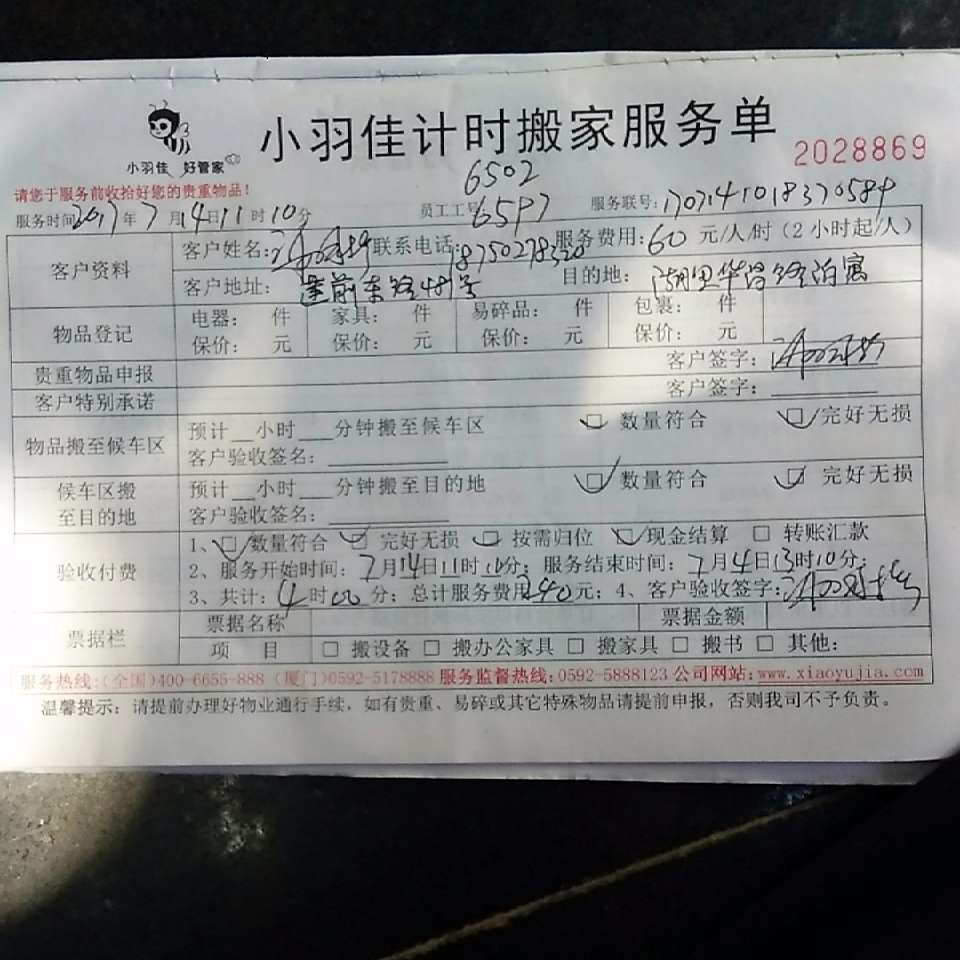 小羽佳 好管家
小羽佳计时搬家服务单
2028869
请您于服务前收拾好您的贵重物品!
6502
服务时间2017年7月14日11时10分 员工工号6597 服务联号:1707141018370589
客户资料 客户姓名: 联系电话:18750278320 服务费用:60元/人/时(2小时起/人)
客户地址: 莲前东路481号 目的地: 湖里华昌路泊寓
物品登记 电器: 件 家具: 件 易碎品: 件 包裹: 件
保价: 元 保价: 元 保价: 元 保价: 元
贵重物品申报 客户签字:
客户特别承诺 客户签字:
物品搬至候车区 预计__小时___分钟搬至候车区 数量符合 完好无损
客户验收签名:
候车区搬至目的地 预计__小时___分钟搬至目的地 数量符合 完好无损
客户验收签名:
验收付费 1、数量符合 完好无损 按需归位 现金结算 转账汇款
2、服务开始时间:7月14日11时10分;服务结束时间:7月4日13时10分;
3、共计:4时00分;总计服务费用240元;4、客户验收签字:
票据栏 票据名称 票据金额
项 目 搬设备 搬办公家具 搬家具 搬书 其他:
服务热线:(全国)400-6655-888 (厦门)0592-5178888 服务监督热线:0592-5888123 公司网站:www.xiaoyujia.com
温馨提示:请提前办理好物业通行手续,如有贵重、易碎或其它特殊物品请提前申报,否则我司不予负责。